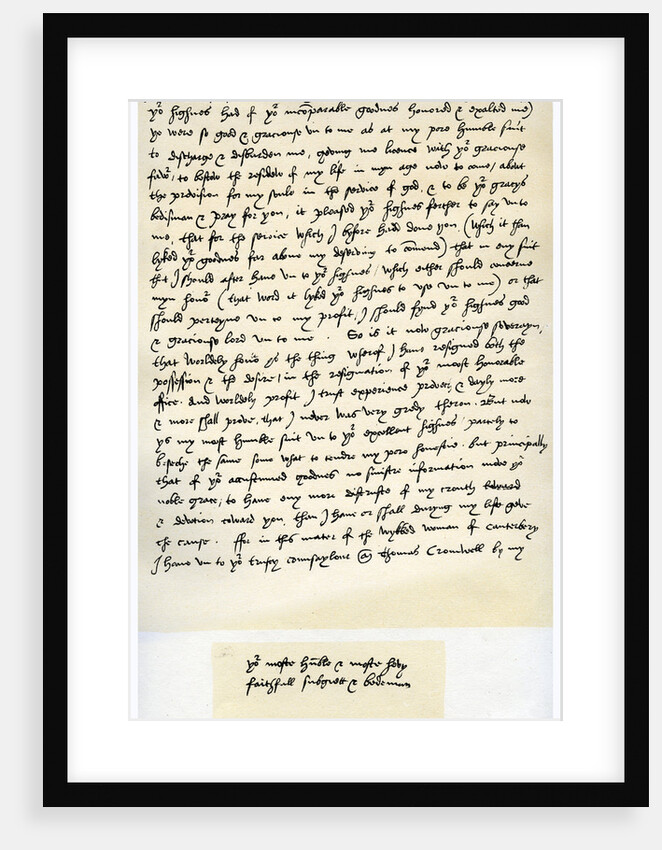 yor highnes had of yor incōparable goodnes honored & exalted me)
ye were so good & graciouse vn to me as at my pore humble suit
to discharge & disburden me, geving me licence with yor graciouse
favor, to bestow the residew of my life in myn age now to come, about
the provision for my soule in the service of god, & to be yor gracys
bedisman & pray for you, it pleased yor highnes ferther to say vn to
me, that for the service which I byfore had done you (which it than
lyked yor goodnes far aboue my deserving to cōmend) that in eny suit
that I should after haue vn to yor highnes, which either should concerne
myn honor (that word it lyked yor highnes to vse vn to me) or that
should perteyne vn to my profit, I should fynd yor highnes good
& graciouse lord vn to me. So is it now graciouse soverayn,
that worldely honor ys the thing wherof I haue resigned both the
possession & the desire, in the resignation of yor moost honorable
office. And worldely profit I trust experience proveth, & dayly more
& more shall prove, that I never was very gredy theron. But now
ys my most humble suit vn to yor excellent highnes, partely to
beseche the same some what to tendre my pore honestie. but principally
that of yor accustumed goodnes no sinistre information move yor
noble grace, to haue eny more distruste of my trouth
& devotion toward you, than I haue or shall during my life geve
the cause. ffor in this mater of the wykked woman of Canterbery
I haue vn to yor trusty counsaylour Thomas Cromwell by my
yor moste hūble & moste hevy
faithfull subgiett & bedeman